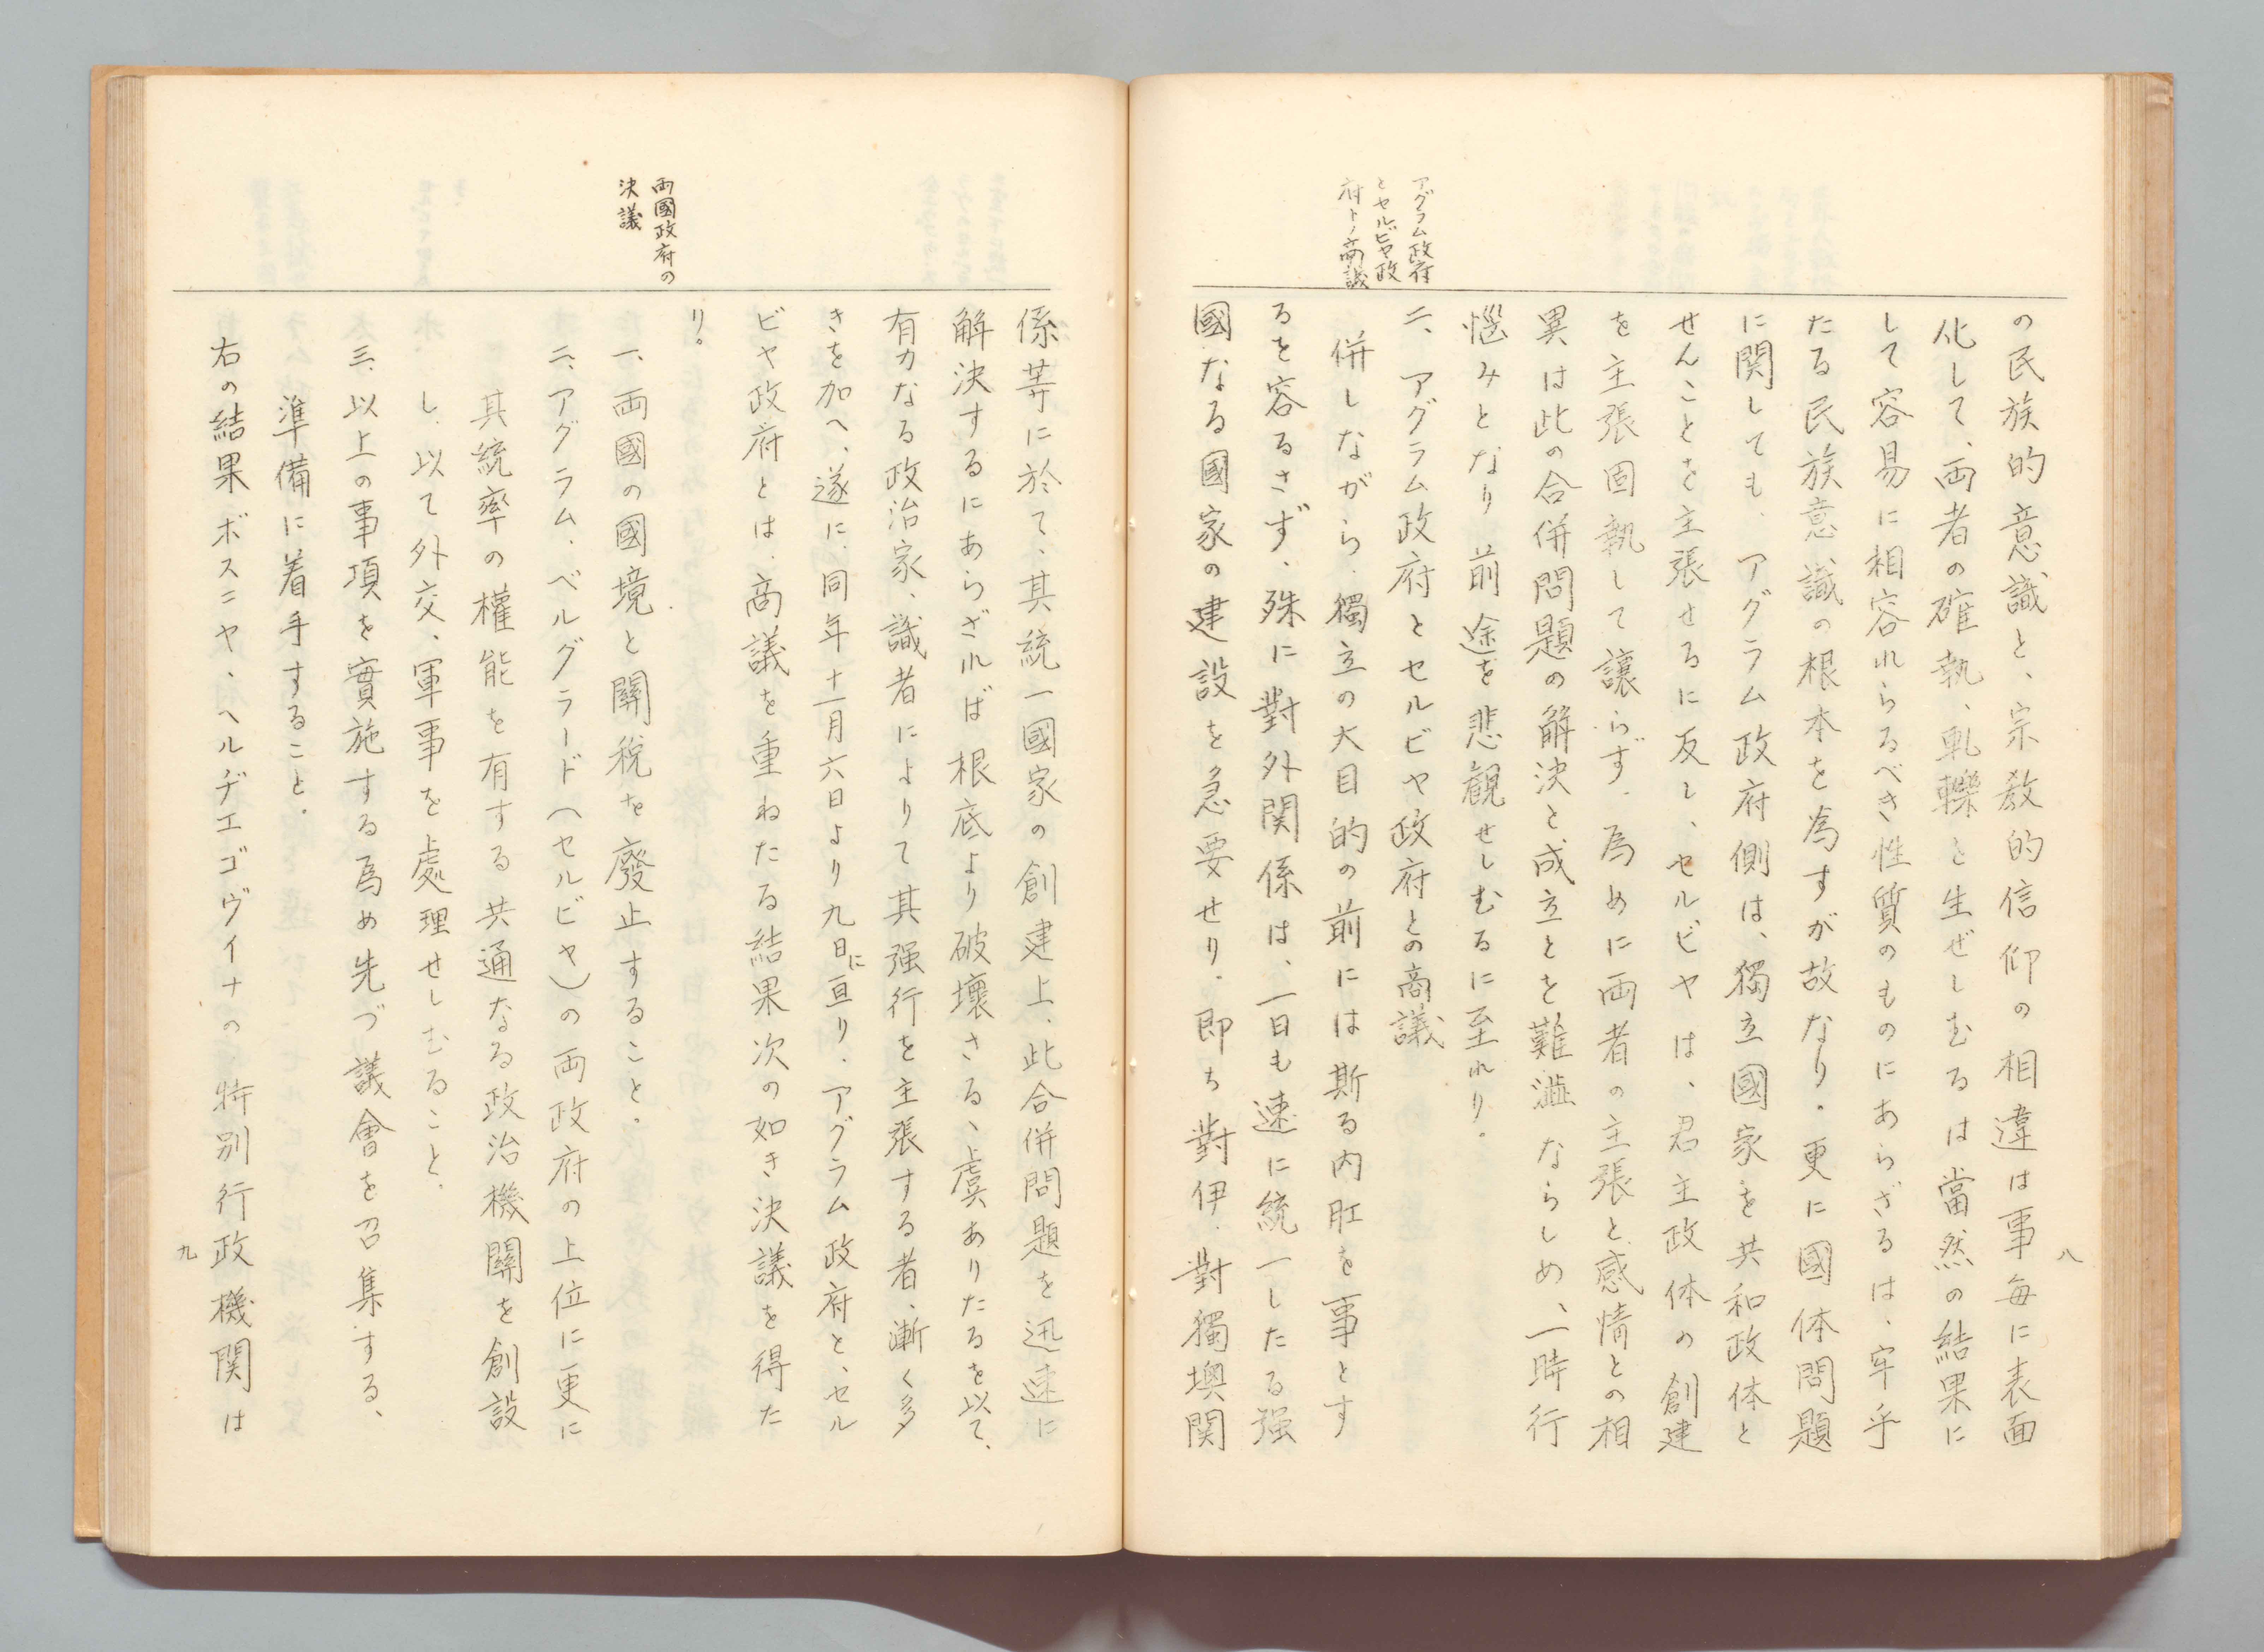 八
の民族的意識と、宗教的信仰の相違は事毎に表面
化して、両者の確執、軋轢を生ぜしむるは當然の結果に
して容易に相容れらるべき性質のものにあらざるは、牢乎
たる民族意識の根本を為すが故なり。更に國体問題
に関しても、アグラム政府側は、獨立國家を共和政体と
せんことを主張せるに反し、セルビヤは、君主政体の創建
を主張固執して讓らず、為めに両者の主張と感情との相
異は此の合併問題の解決と、成立とを難澁ならしめ、一時行
悩みとなり前途を悲観せしむるに至れり。
アグラム政府
とセルビヤ政
府トノ商議
二、アグラム政府とセルビヤ政府との商議
併しながら、獨立の大目的の前には斯る内訌を事とす
るを容るさず、殊に對外関係は、一日も速に統一したる强
國なる國家の建設を急要せり。即ち對伊、對獨墺関
係等に於て、其統一國家の創建上、此合併問題を迅速に
解決するにあらざれば根底より破壞さるゝ虞ありたるを以て、
有力なる政治家、識者によりて其强行を主張する者、漸く多
きを加へ、遂に、同年十一月六日より九日に亘り、アグラム政府と、セル
ビヤ政府とは、商議を重ねたる結果次の如き決議を得た
り。
両國政府の
決議
一、両國の國境と關税を廢止すること。
二、アグラム、ベルグラード(セルビヤ)の両政府の上位に更に
其統率の權能を有する共通なる政治機關を創設
し、以て外交、軍事を處理せしむること。
三、以上の事項を實施する為め先づ議會を召集する、
準備に着手すること。
右の結果ボスニヤ、ヘルヂエゴヴイナの特別行政機関は
九